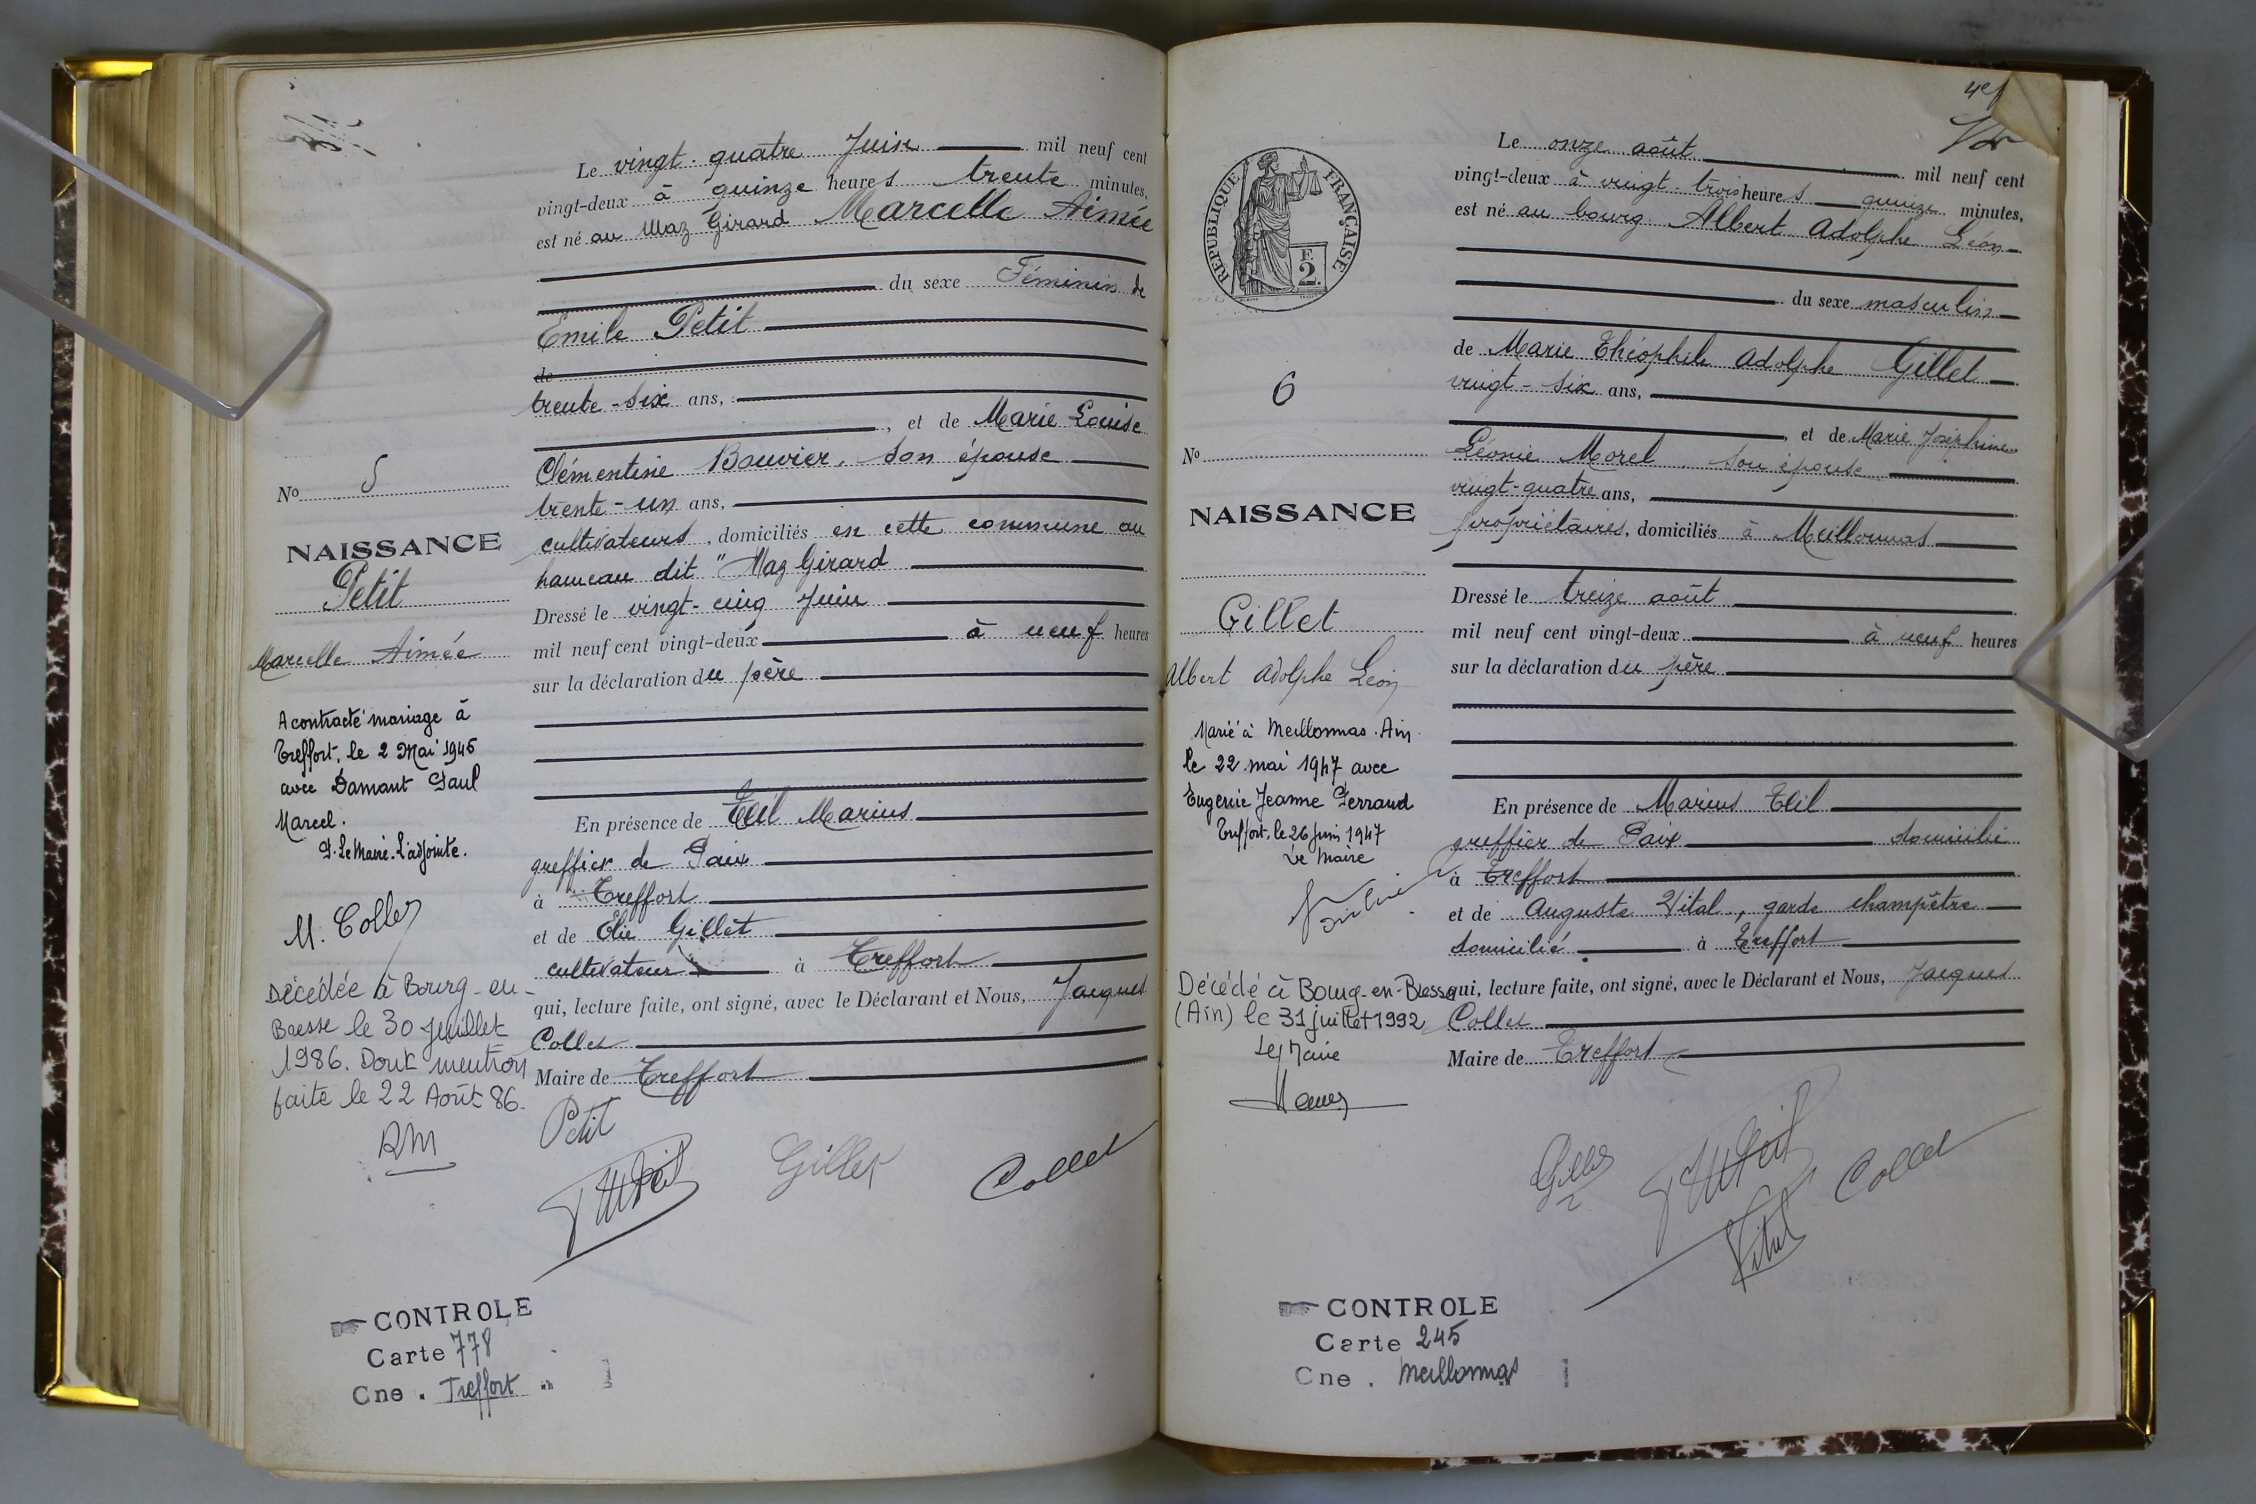 Le vingt-quatre Juin mil neuf cent
vingt-deux à quinze heures trente minutes,
est né au Maz Girard Marcelle Aimée
du sexe Féminin de
Emile Petit
de
trente-six ans,
, et de Marie Louise
Clémentine Bouvier, son épouse
trente-un ans,
cultivateurs, domiciliés en cette commune au
hameau dit "Maz Girard
Dressé le vingt-cinq Juin
mil neuf cent vingt-deux à neuf heures
sur la déclaration du père
En présence de Teil Marius
greffier de Paix
à Treffort
et de Elie Gillet
cultivateur à Treffort
qui, lecture faite, ont signé, avec le Déclarant et Nous, Jacques
Collet
Maire de Treffort
Petit
Gillet
Collet
No 5
NAISSANCE
Petit
Marcelle Aimée
A contracté mariage à
Treffort, le 2 Mai 1945
avec Damant Paul
Marcel.
P. Le Maire. L'adjointe.
M. Collet
Décédée à Bourg-en-
Bresse le 30 Juillet
1986. Dont mention
faite le 22 Août 86.
RM
CONTROLE
Carte 778
Cne. Treffort
4e f
RÉPUBLIQUE FRANÇAISE
F.
2.
Le onze août mil neuf cent
vingt-deux à vingt-trois heures quinze minutes,
est né au bourg Albert Adolphe Léon
du sexe masculin
de Marie Théophile Adolphe Gillet
vingt-six ans,
, et de Marie Joséphine
Léonie Morel, son épouse
vingt-quatre ans,
propriétaires, domiciliés à Meillonnas
Dressé le treize août
mil neuf cent vingt-deux à neuf heures
sur la déclaration du père
En présence de Marius Teil
greffier de Paix domicilié
à Treffort
et de Auguste Vital, garde champêtre
domicilié à Treffort
qui, lecture faite, ont signé, avec le Déclarant et Nous, Jacques
Collet
Maire de Treffort
Gillet
Collet
Vital
6
No
NAISSANCE
Gillet
Albert Adolphe Léon
Marié à Meillonnas. Ain.
le 22 mai 1947 avec
Eugénie Jeanne Perraud
Treffort, le 26 juin 1947
Le Maire
Décédé à Bourg-en-Bresse
(Ain) le 31 juillet 1992
Le Maire
CONTROLE
Carte 245
Cne. Meillonnas